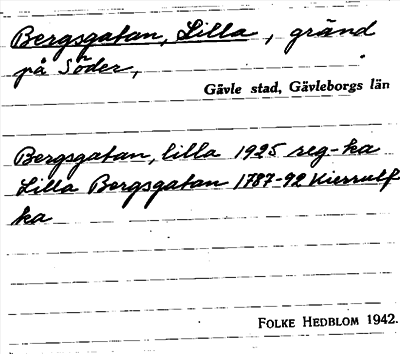 Bergsgatan, Lilla, gränd
på Söder,
Gävle stad, Gävleborgs län
Bergsgatan, lilla 1925 reg-ka
Lilla Bergsgatan 1787-92 Kierrulf
ka
FOLKE HEDBLOM 1942.